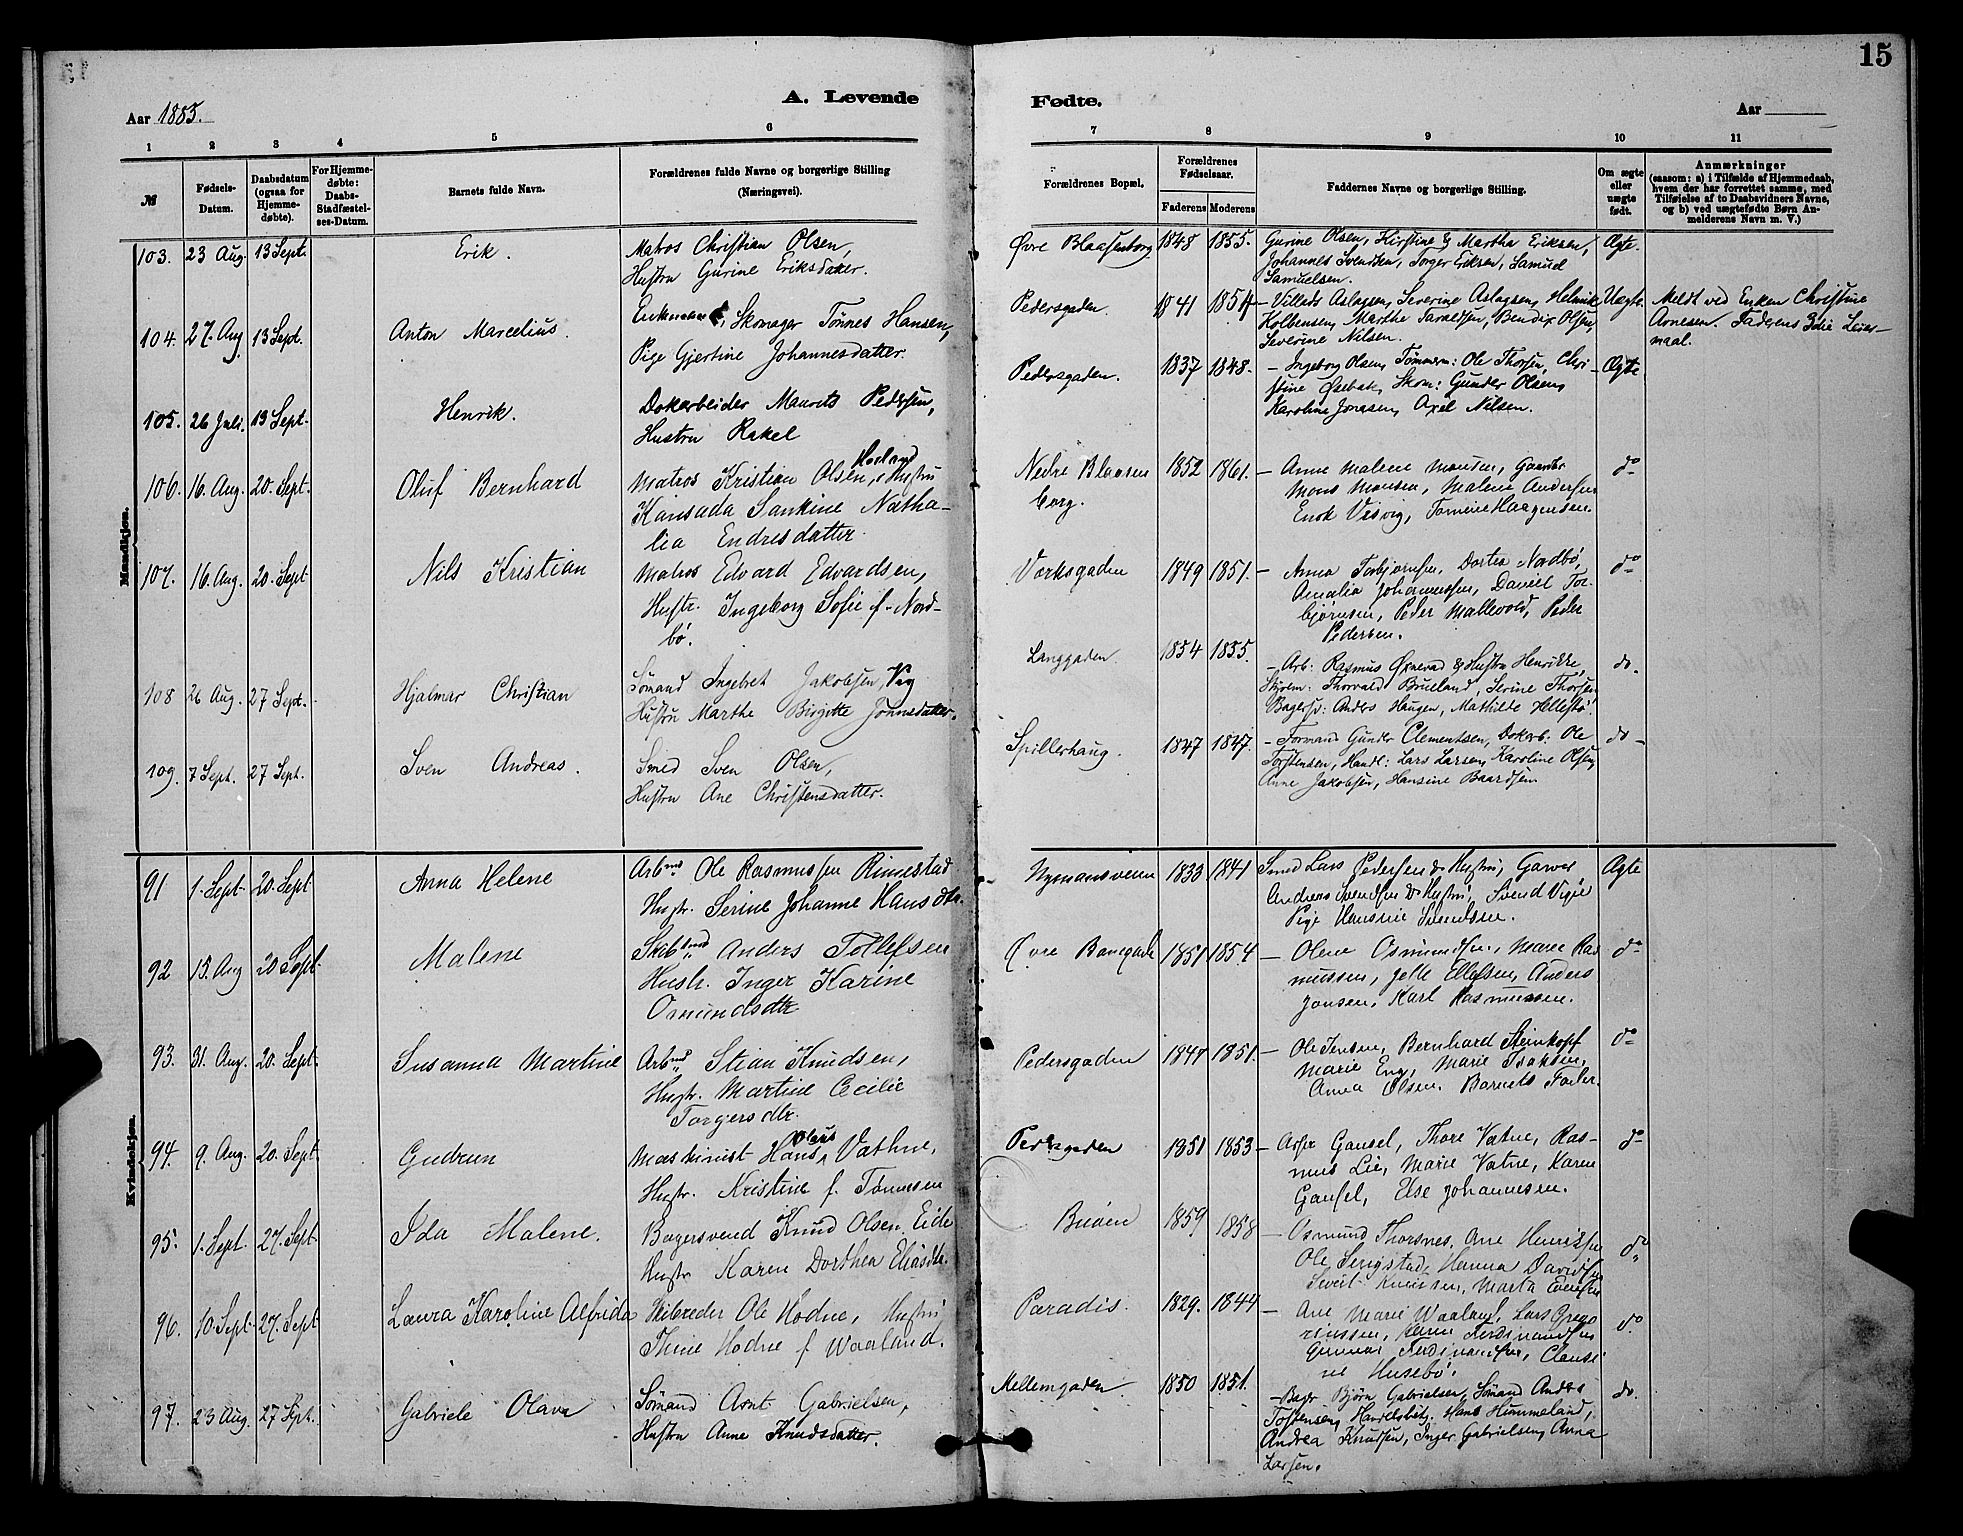 15
A. Levende Fødte.
Aar 1885.
Aar
1 2 3 4 5 6 7 8 9 10 11
№
Fødsels-Datum.
Daabsdatum (ogsaa for Hjemmedøbte).
For Hjemmedøbte: Daabs-Stadfæstelses-Datum.
Barnets fulde Navn.
Forældrenes fulde Navne og borgerlige Stilling (Næringsvei).
Forældrenes Bopæl.
Forældrenes Fødselsaar.
Faderens Moderens
Faddernes Navne og borgerlige Stilling.
Om ægte eller uægte født.
Anmærkninger
(saasom: a) i Tilfælde af Hjemmedaab, hvem der har forrettet samme, med Tilføielse af to Daabsvidners Navne, og b) ved uægtefødte Børn Anmelderens Navn m. V.)
Mandkjøn.
103. 23 Aug. 13 Sept. Erik. Matros Christian Olsen,
Hustru Gurine Eriksdatter.
Øvre Blaasenborg 1848 1855. Gurine Olsen, Kirstine & Martha Eriksen,
Johannes Svendsen, Torger Eriksen, Samuel
Samuelsen.
Ægte.
104. 27. Aug 13 Sept. Anton Marcelius. Enkemand, Skomager Tønnes Hansen,
Pige Gjertine Johannesdatter.
Pedersgaden. 1841 1854 – Villads Aslagsen, Severine Aslagsen, Helmik
Kolbensen, Marthe Bendix Olsen,
Severine Nilsen.
Uægte. Meldt ved Enken Christine
Arnesen. Faderens 3die Leier-
maal.
105. 26 Juli. 13 Sept. Henrik. Dokarbeider Maurits Pedersen,
Hustru Rakel
Pedersgaden. 1837 1848. – Ingeborg Olsen, Tømmerm: Ole Thorsen, Chri-
stine Skom: Gunder Olsen,
Karoline Jonasen, Axel Nilsen.
Ægte
106. 16. Aug. 20. Sept. Oluf Bernhard Matros Kristian Olsen Hustru
Sankine Natha-
lia Endresdatter
Nedre Blaasen
borg. 1852 1861. – Anne Malene Monsen,
Mons Monsen, Malene Andersen
Enok Haagensen.
do
107. 16. Aug. 20. Sept. Nils Kristian Matros Edvard Edvardsen,
Hustr. Ingeborg Sofie f. Nord-
bö.
Værksgaden 1849 1851. – Anna Torbjørnsen, Dortea Nordbö,
Amalia Johannessen, Daniel Tor-
bjørnsen, Peder Mallevold, Peder
Pedersen.
do
108 26 Aug. 27 Sept. Hjalmar Christian Sømand Ingebret Jakobsen,
Hustru Marthe Birgitte Jonnesdatter.
Langgaden. 1854 1855. – Arb: Rasmus Øsnevad & Hustru Henrikke,
Styrm: Thorvald Brueland, Serine Thorsen
Bagersv: Anders Haugen, Mathilde Hellestø.
do.
109. 7 Sept. 27 Sept. Sven Andreas. Smed Sven Olsen,
Hustru Ane Christensdatter.
Spillerhaug. 1847 1847. – Formand Gunder Clementsen, Dokarb: Ole
Torstensen, Handl: Lars Larsen, Karoline Olsen,
Anne Jakobsen, Hansine Baardsen
do –
Kvindekjøn.
91 1. Sept. 20. Sept. Anna Helene Arbmd. Ole Rasmussen Rimestad
Hustr. Serine Johanne Hansdtr.
Nymansveien 1833 1841 Smed Lars Pedersen & Hustru, Garver
Andreas Svendsen & Hustru, Svend Vigie
Pige Hansine Svendsen.
Ægte
92 15. Aug 20 Sept. Malene Skibtmd. Anders Tollefsen
Hustr. Inger Karine
Osmundsdtr
Øvre Banegade 1851 1854 – Olene Osmundsen, Marie Ras
mussen, Jelle Ellefsen, Anders
Jonsen, Karl Rasmussen.
do
93. 31. Aug. 20. Sept. Susanna Martine Arbmd. Stian Knudsen,
Hustr. Martine Cecilie
Torgersdtr.
Pedersgaden 1847 1851 – Ole Jensen, Bernhard Steinkopf
Marie Eng, Marie Isaksen,
Anna Olsen. Barnets Fader.
do
94. 9. Aug. 20. Sept. Gudrun Maskinist Hans Olaus Vathne,
Hustr. Kristine f. Tønnesen
Pedersgaden 1851 1853 – Asser Gausel, Thore Vatne, Ras-
mus Lie, Marie Vatne, Karen
Gausel, Else Johannesen.
do
95. 1. Sept. 27. Sept. Ida Malene. Bagersvend Knud Olsen Eide
Hustr Karen Dorthea Eliasdtr.
Buöen 1859 1858 – Osmund Thorsnes, Ane Henriksen
Ole Serigstad, Hanna Davidsen
Sveit Knudsen, Marta Evensen
do
96. 10. Sept. 27. Sept Laura Karoline Alfrida Skibreder Ole Hodne, Hustru
Thine Hodne f Waaland.
Paradis. 1829. 1844 – Ane Marie Waaland, Lars Grego
riussen, Ferdinandsen
Gunnar Ferdinandsen, Clausi
ne Husebö.
do
97. 23 Aug. 27 Sept. Gabriele Olava Sømand Arnt Gabrielsen,
Hustru Anne Knudsdatter.
Mellemgaden. 1850 1851. – Bager Bjørn Gabrielsen, Sømand Anders
Torstensen, Handelsbetj. Hans Hummeland,
Andrea Knudsen, Inger Gabrielsen, Anna
Larsen.
do.